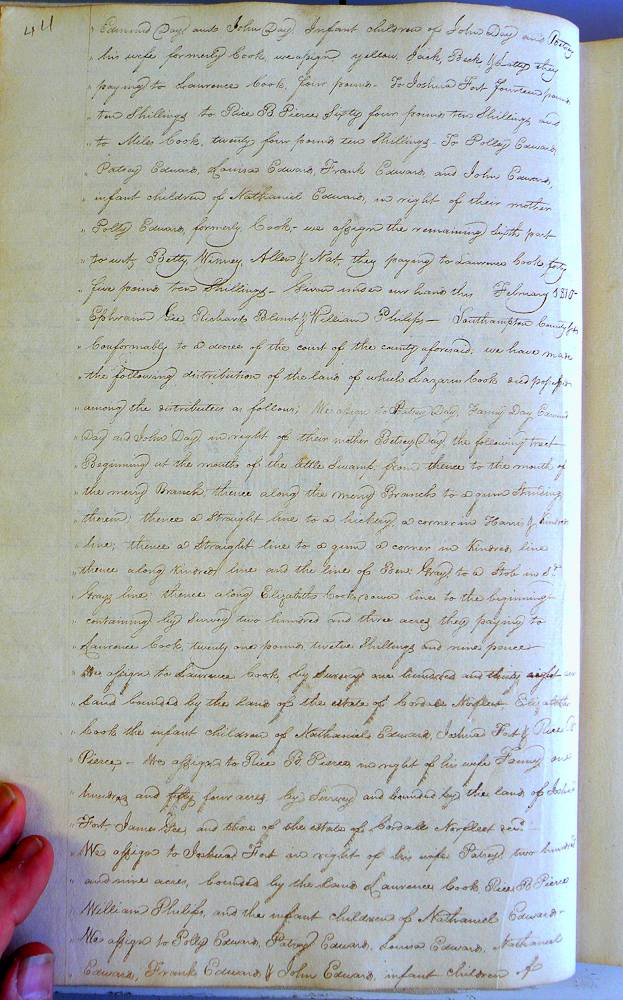 44
Edmund Day and John Day Infant children of John Day and Betsey
his wife formerly Cook, we assign yellow Jack, Beck & Letty they
paying to Laurence Cook, four pounds - To Joshua Fort fourteen pounds
ten Shillings to Rice B Pierce Sixty four pounds ten Shillings and
to Miles Cook, twenty four pounds ten Shillings - To Polley Edwards,
Patsey Edwards, Louisa Edwards, Frank Edwards, and John Edwards,
infant children of Nathaniel Edwards, in right of their mother
Polly Edwards, formerly Cook, - we assign the remaining Sixth part
to wit, Betty, Winney, Allen & Nat, they paying to Laurence Cook, forty
five pounds ten Shillings - Given under our hands this February 1810 -
Ephraim Gee Richard Blunt & William Philips - Southampton County
Conformably to a decree of the court of the county aforesaid, we have made
the following distribution of the land of which Lazarus Cook died
among the distributees as follows; We assign to Patsey Day, Fanny Day, Edmund
Day and John Day in right of their mother Betsey Day, the following tract
Beginning at the mouth of the little Swamp, from thence to the mouth of
the Branch, thence along the Branch to a gum Standing
therein; thence a Straight line to a hickory, a corner in Harris & Kindred
line; thence a Straight line to a gum a corner in Kindred line
thence along Kindred line and the line of Ben: Gray to a in
Grays line thence along Elizabeth Cook, line to the beginning
containing by Survey two hundred and three acres they paying to
Laurence Cook, twenty one pounds, twelve Shillings and nine pence
We assign to Laurence Cook, by Survey one hundred and thirty eight
land bounded by the land of the estate of Cordall Norfleet, Elizabeth
Cook the infant children of Nathaniel Edwards, Joshua Fort & Rice B
Pierce, - We assign to Rice B Pierce in right of his wife Fanny one
hundred and fifty four acres by Survey and bounded by the land of Joshua
Fort, James Gee, and those of the estate of Cordall Norfleet
We assign to Joshua Fort in right of his wife Patsey two hundred
and nine acres, bounded by the land Laurence Cook, Rice B Pierce
William Philips, and the infant children of Nathaniel Edwards -
We assign to Polly Edwards, Patsey Edwards, Louisa Edwards, Nathaniel
Edwards, Frank Edwards & John Edwards, infant children of